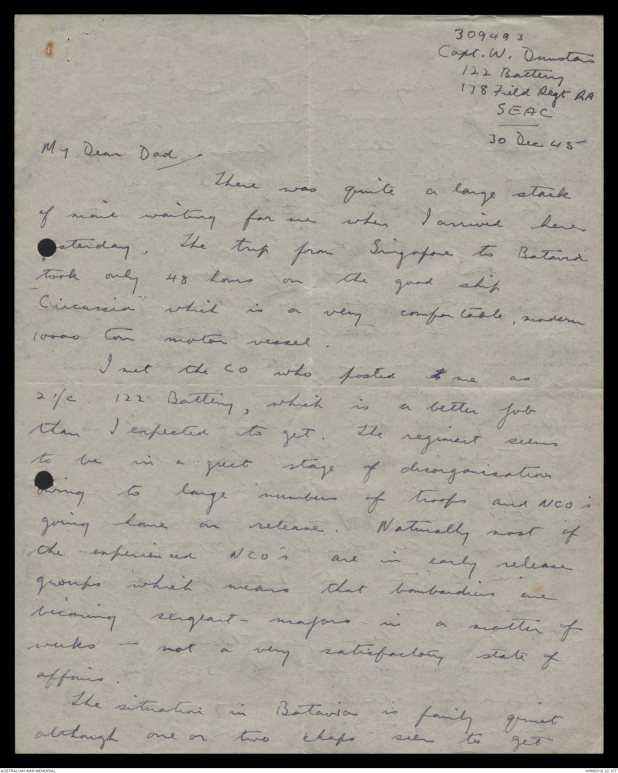 309493
Capt. W. Dunstan
122 Battery
178 Field Regt RA
SEAC
30 Dec 45
My Dear Dad
There was quite a large stack
of mail waiting for me when I arrived here
yesterday. The trip from Singapore to Batavia
took only 48 hours on the good ship
"Circassia" which is a very comfortable, modern
10000 ton motor vessel.
I met the CO who posted me as
2 i/c 122 Battery, which is a better job
than I expected to get. The regiment seems
to be in a great stage of disorganisation
owing to large numbers of troops and NCO's
going home on release. Naturally most of
the experienced NCO's are in early release
groups which means that bombardiers are
becoming sergeant-majors in a matter of
weeks — not a very satisfactory state of
affairs.
The situation in Batavia is fairly quiet
although one or two chaps seem to get
AUSTRALIAN WAR MEMORIAL